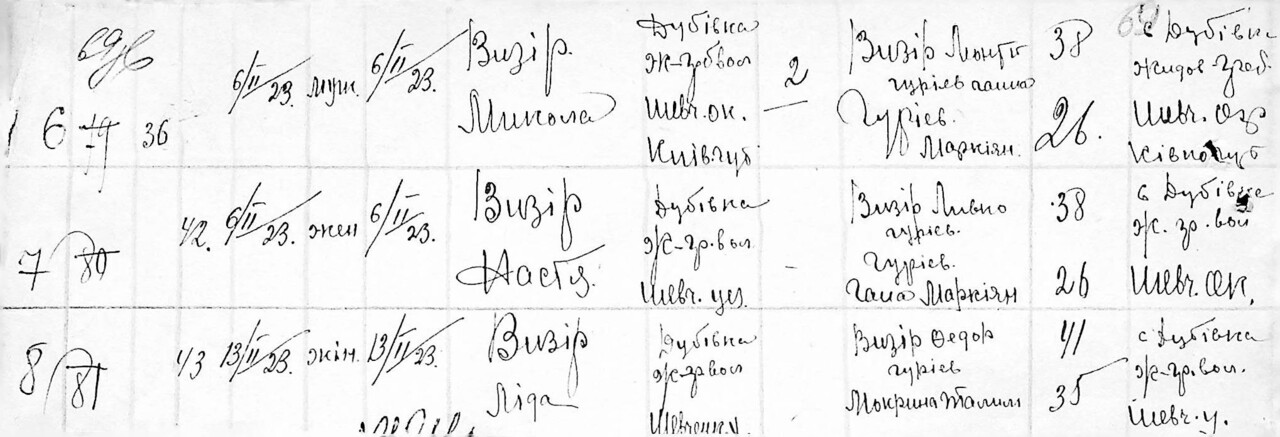 6 79 36 6/II 23. муж. 6/II 23. Визір Микола Дубівка Ж-гр. вол Шевч. ок. Київ губ 2 Визір
гуріев
Гуріев. Маркіян. 38 26. с Дубівка Жидов-греб. Шевч. окр
7 80 42. 6/II 23. жен 6/II 23. Визір Настя. Дубівка Ж-гр. вол. Шевч. уез. - Визір Левко гуріев.
Гуріев.
Гана Маркіян 38 26 с Дубівка Ж. гр. вол Шевч. ок.
8 81 43 13/II 23. жін. 13/II 23. Визір Ліда Дубівка Ж-гр вол Шевченк. у. Визір Федор гуріев
Мокрина 41 35 с Дубівка Ж-гр. вол. Шевч. у.